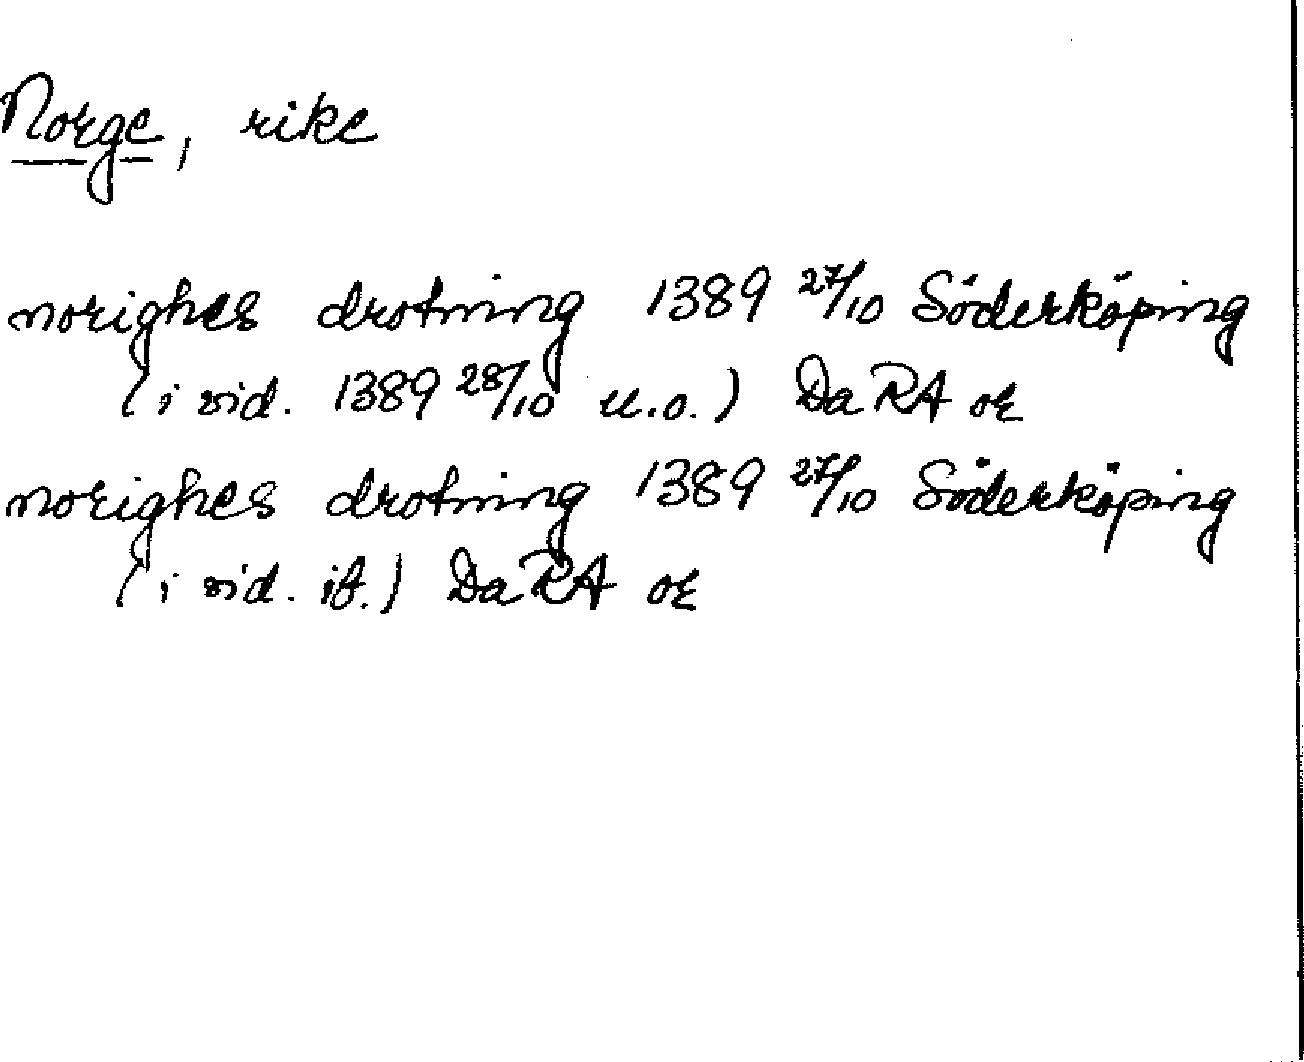 Norge, rike
norighes drotning 1389 27/10 Söderköping
(i vid. 1389 28/10 u.o.) DaRA or
norighes drotning 1389 27/10 Söderköping
(i vid. ib.) DaRA or